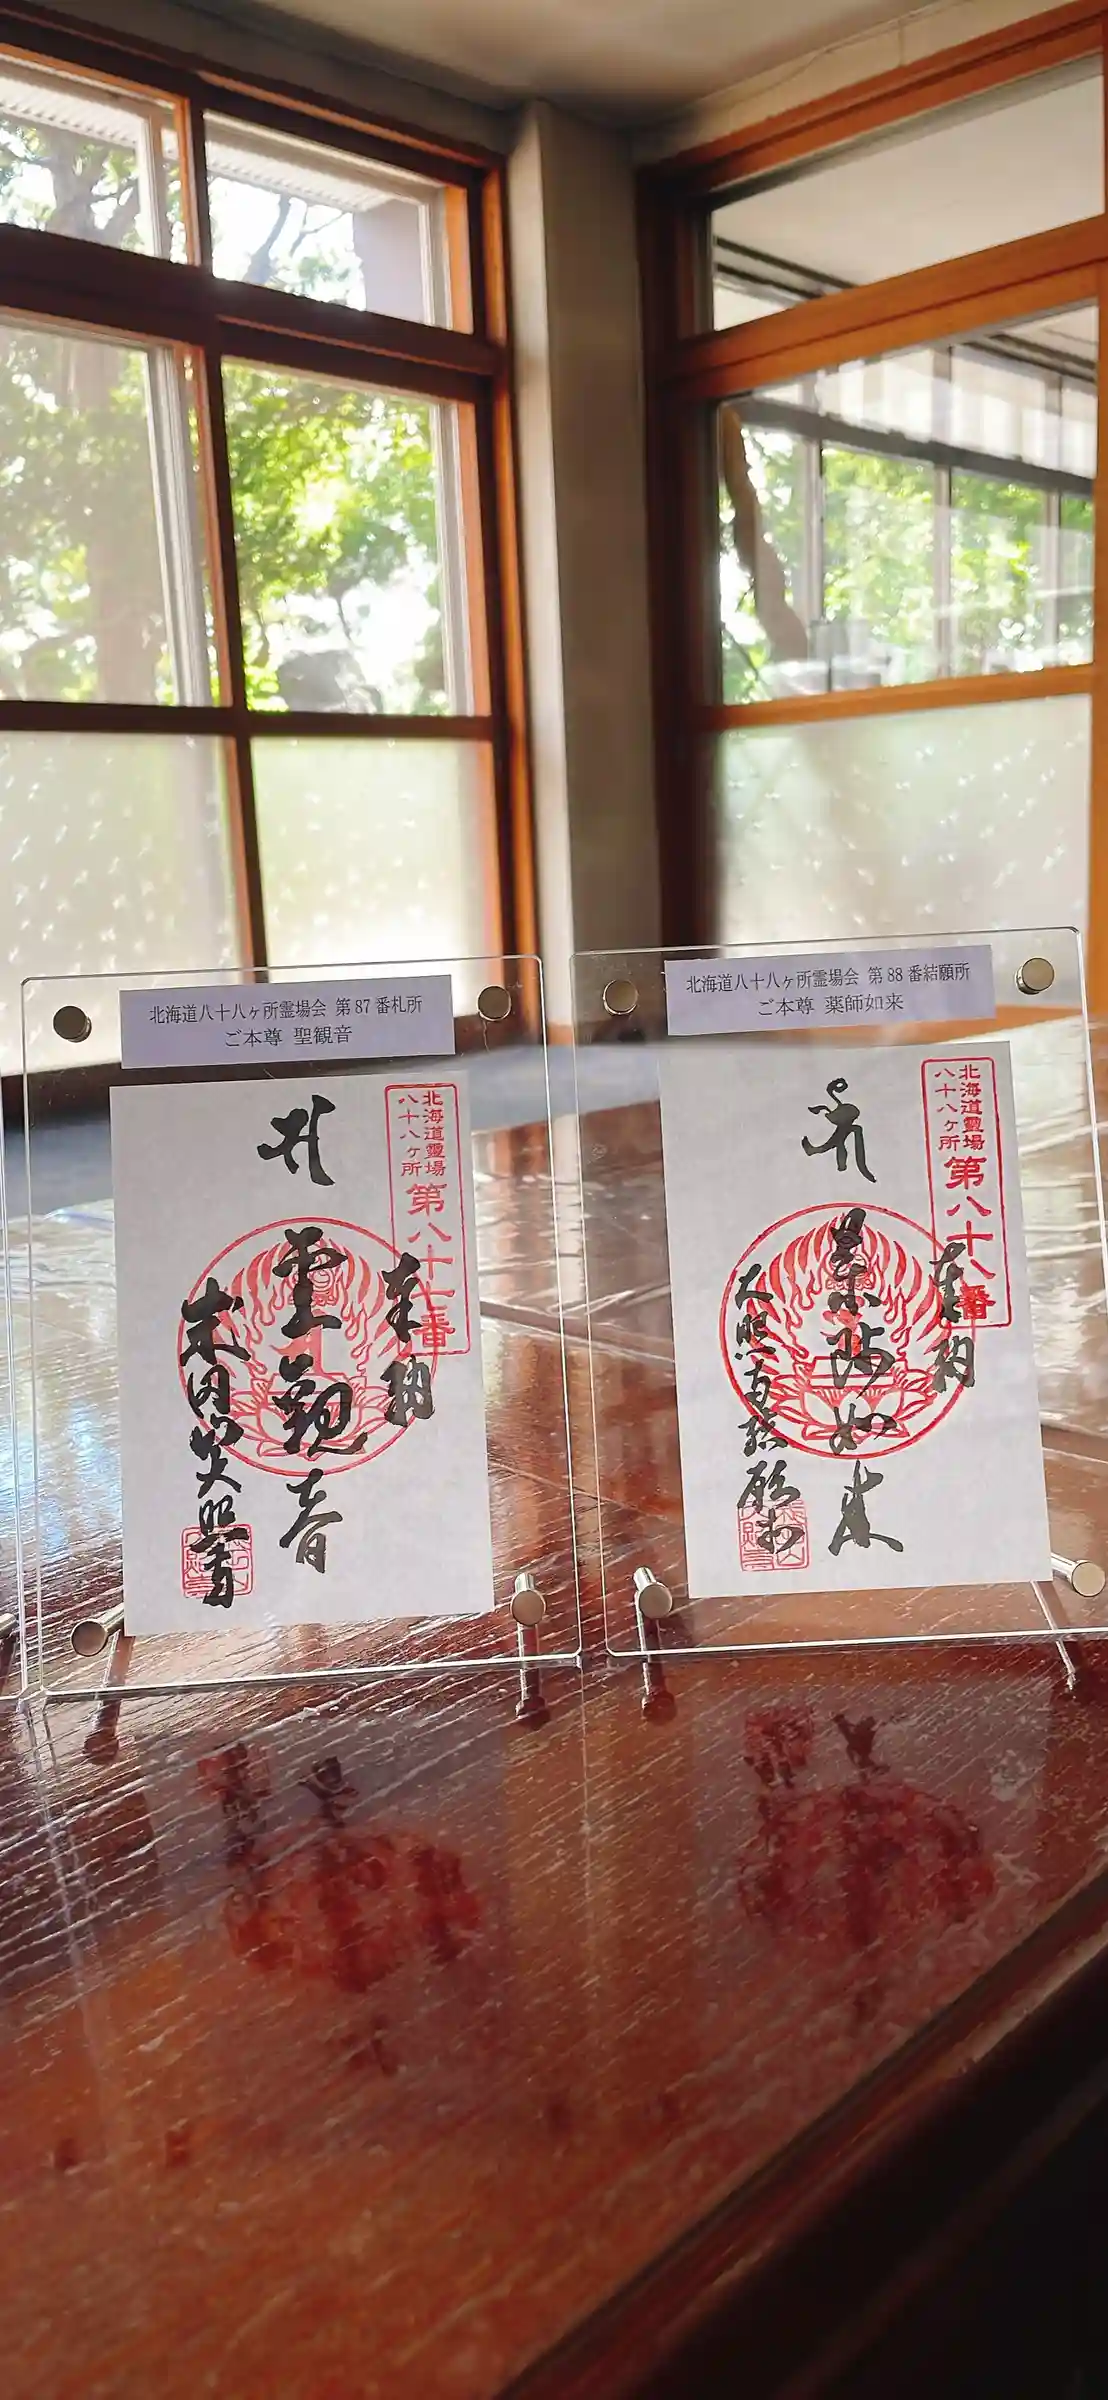 北海道八十八ヶ所霊場会 第87番札所
ご本尊 聖観音
北海道霊場
八十八ヶ所
第八十七番
奉納
聖観音
北海道八十八ヶ所霊場会 第88番結願所
ご本尊 薬師如来
北海道霊場
八十八ヶ所
第八十八番
奉納
薬師如来